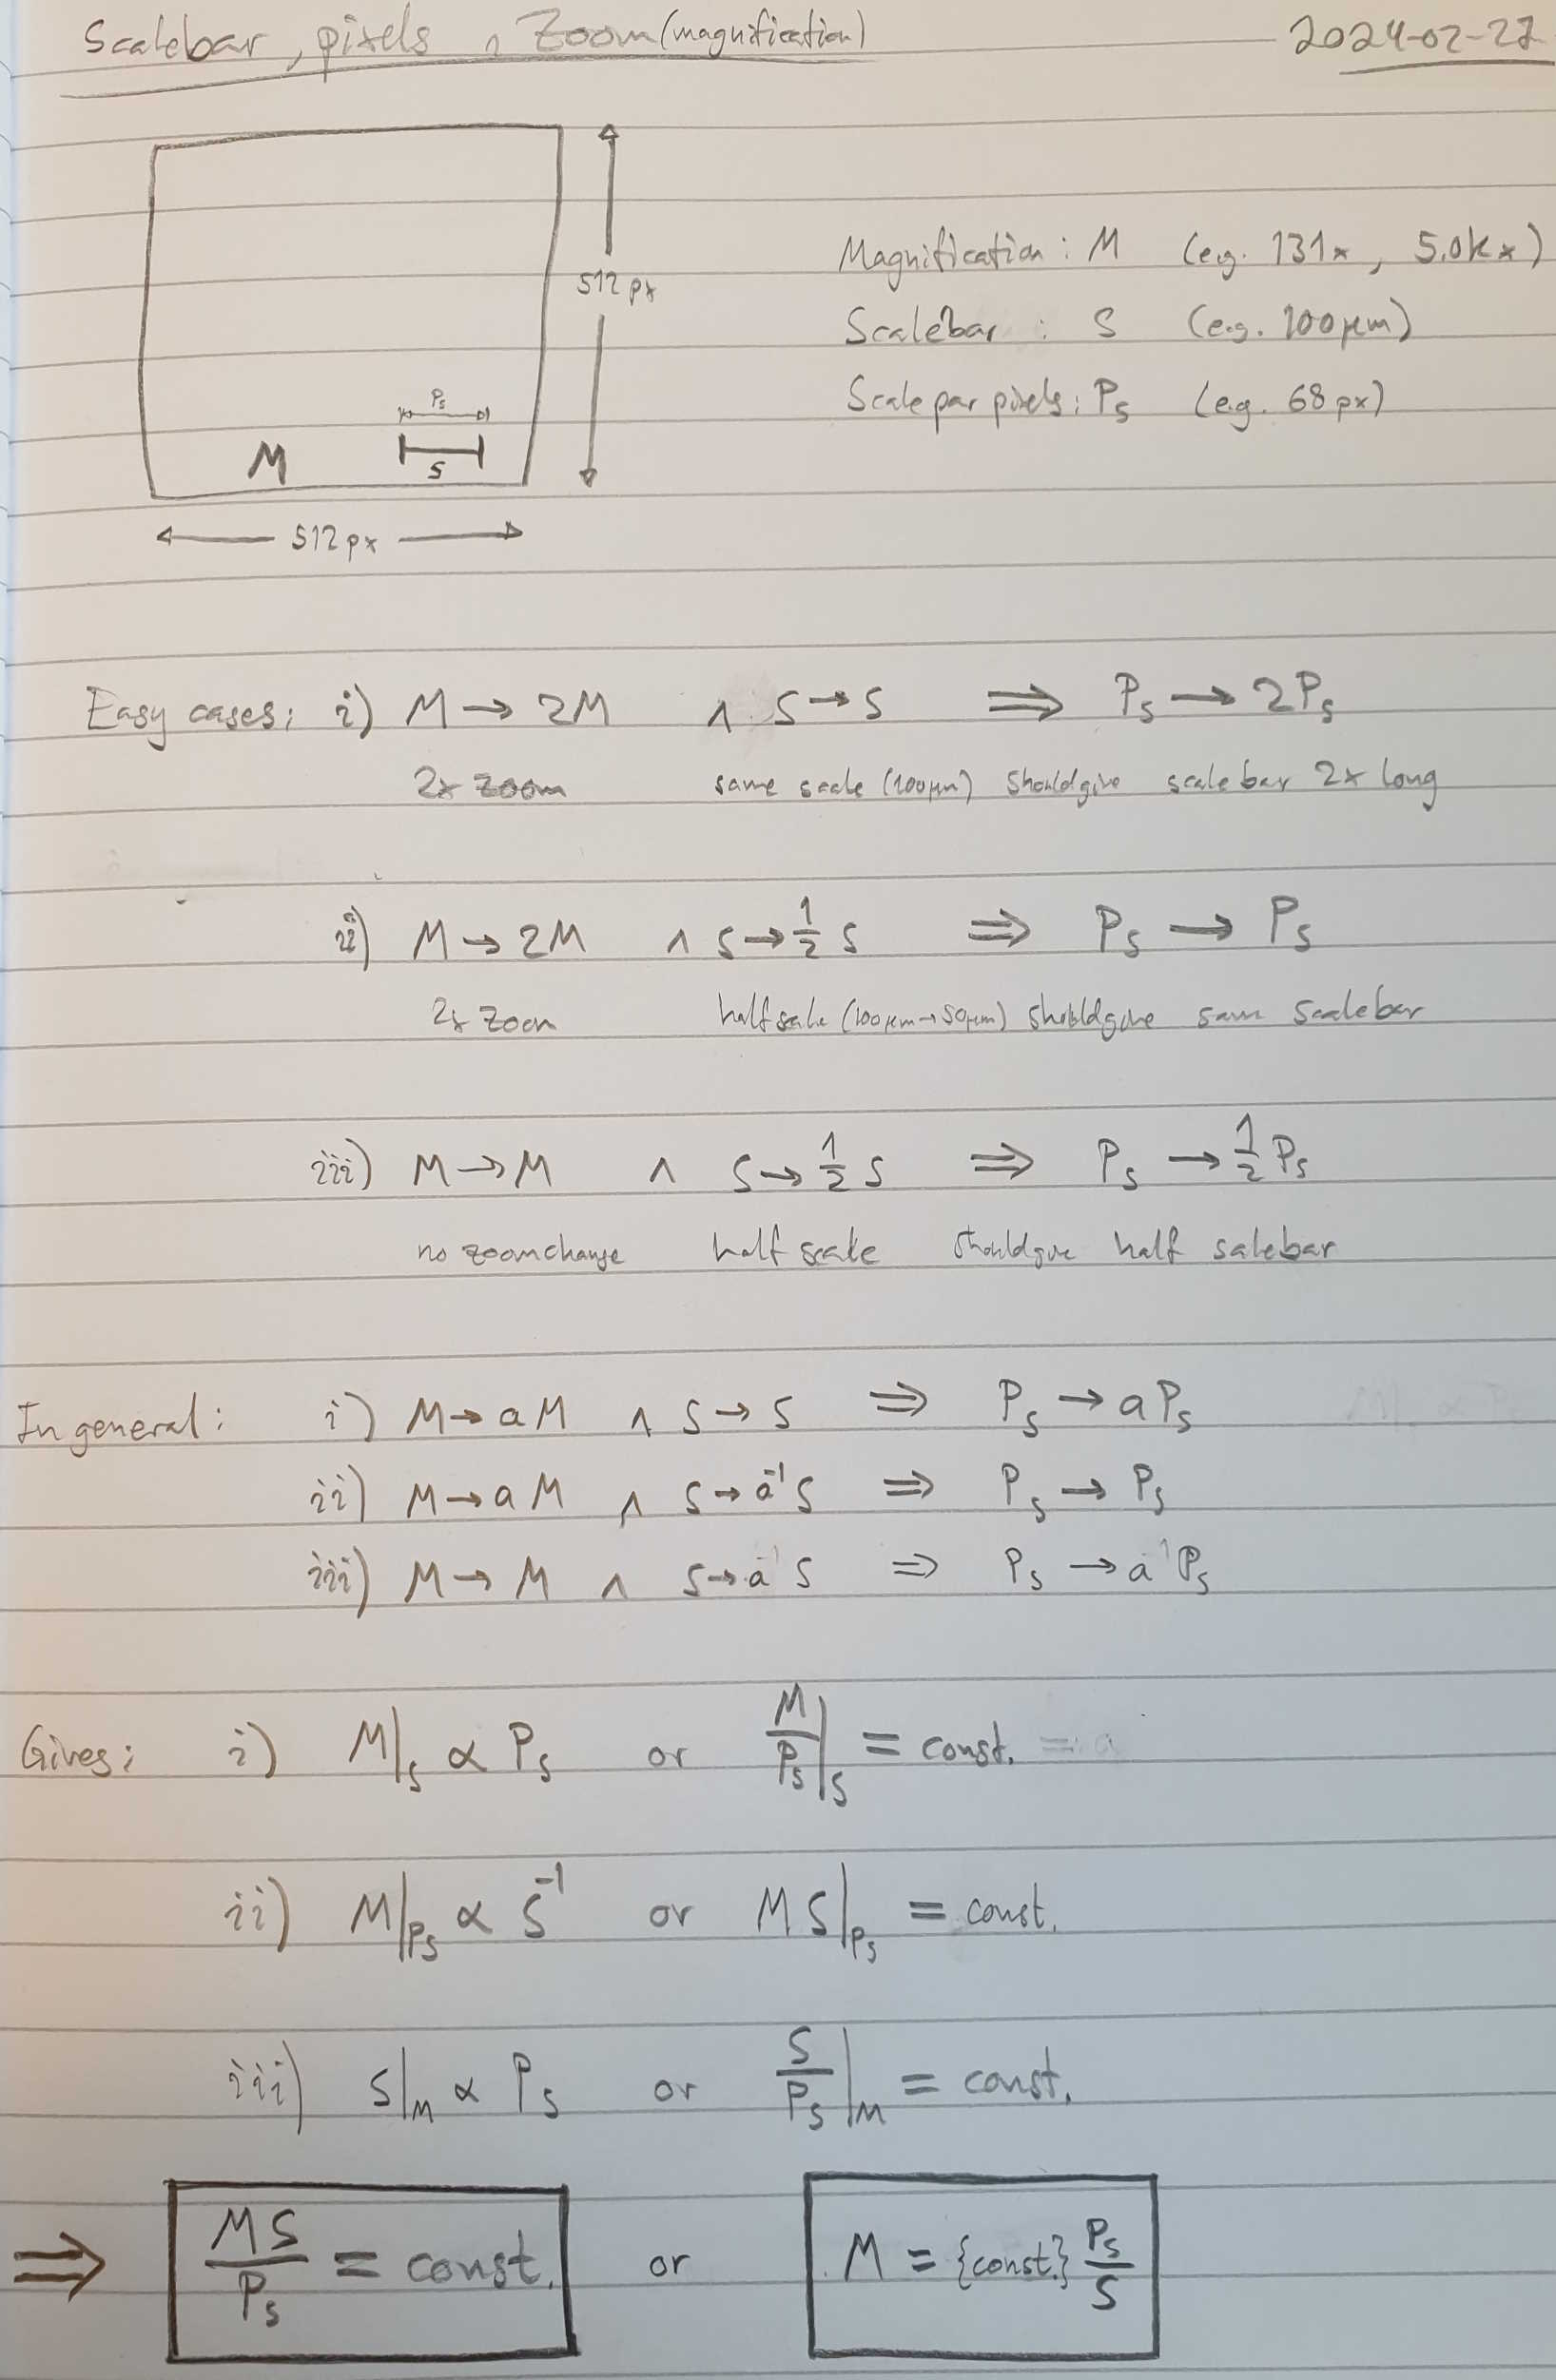 Scalebar, pixels ∧ Zoom (magnification) 2024-02-27
512 px
Magnification: M (e.g. 131x, 5.0kx)
Scalebar : S (e.g. 100μm)
Scale par pixels: Ps (e.g. 68 px)
Ps
M S
512 px
Easy cases: i) M → 2M ∧ S → S ⇒ Ps → 2Ps
2x zoom same scale (100μm) should give scale bar 2x long
ii) M → 2M ∧ S → 1/2 S ⇒ Ps → Ps
2x zoom half scale (100μm → 50μm) should give same scalebar
iii) M → M ∧ S → 1/2 S ⇒ Ps → 1/2 Ps
no zoom change half scale should give half salebar
In general: i) M → aM ∧ S → S ⇒ Ps → aPs
ii) M → aM ∧ S → a⁻¹S ⇒ Ps → Ps
iii) M → M ∧ S → a⁻¹S ⇒ Ps → a⁻¹Ps
Gives: i) M|s ∝ Ps or M/Ps|s = const.
ii) M|Ps ∝ S⁻¹ or MS|Ps = const.
iii) S|M ∝ Ps or S/Ps|M = const.
⇒ MS/Ps = const. or M = {const.} Ps/S